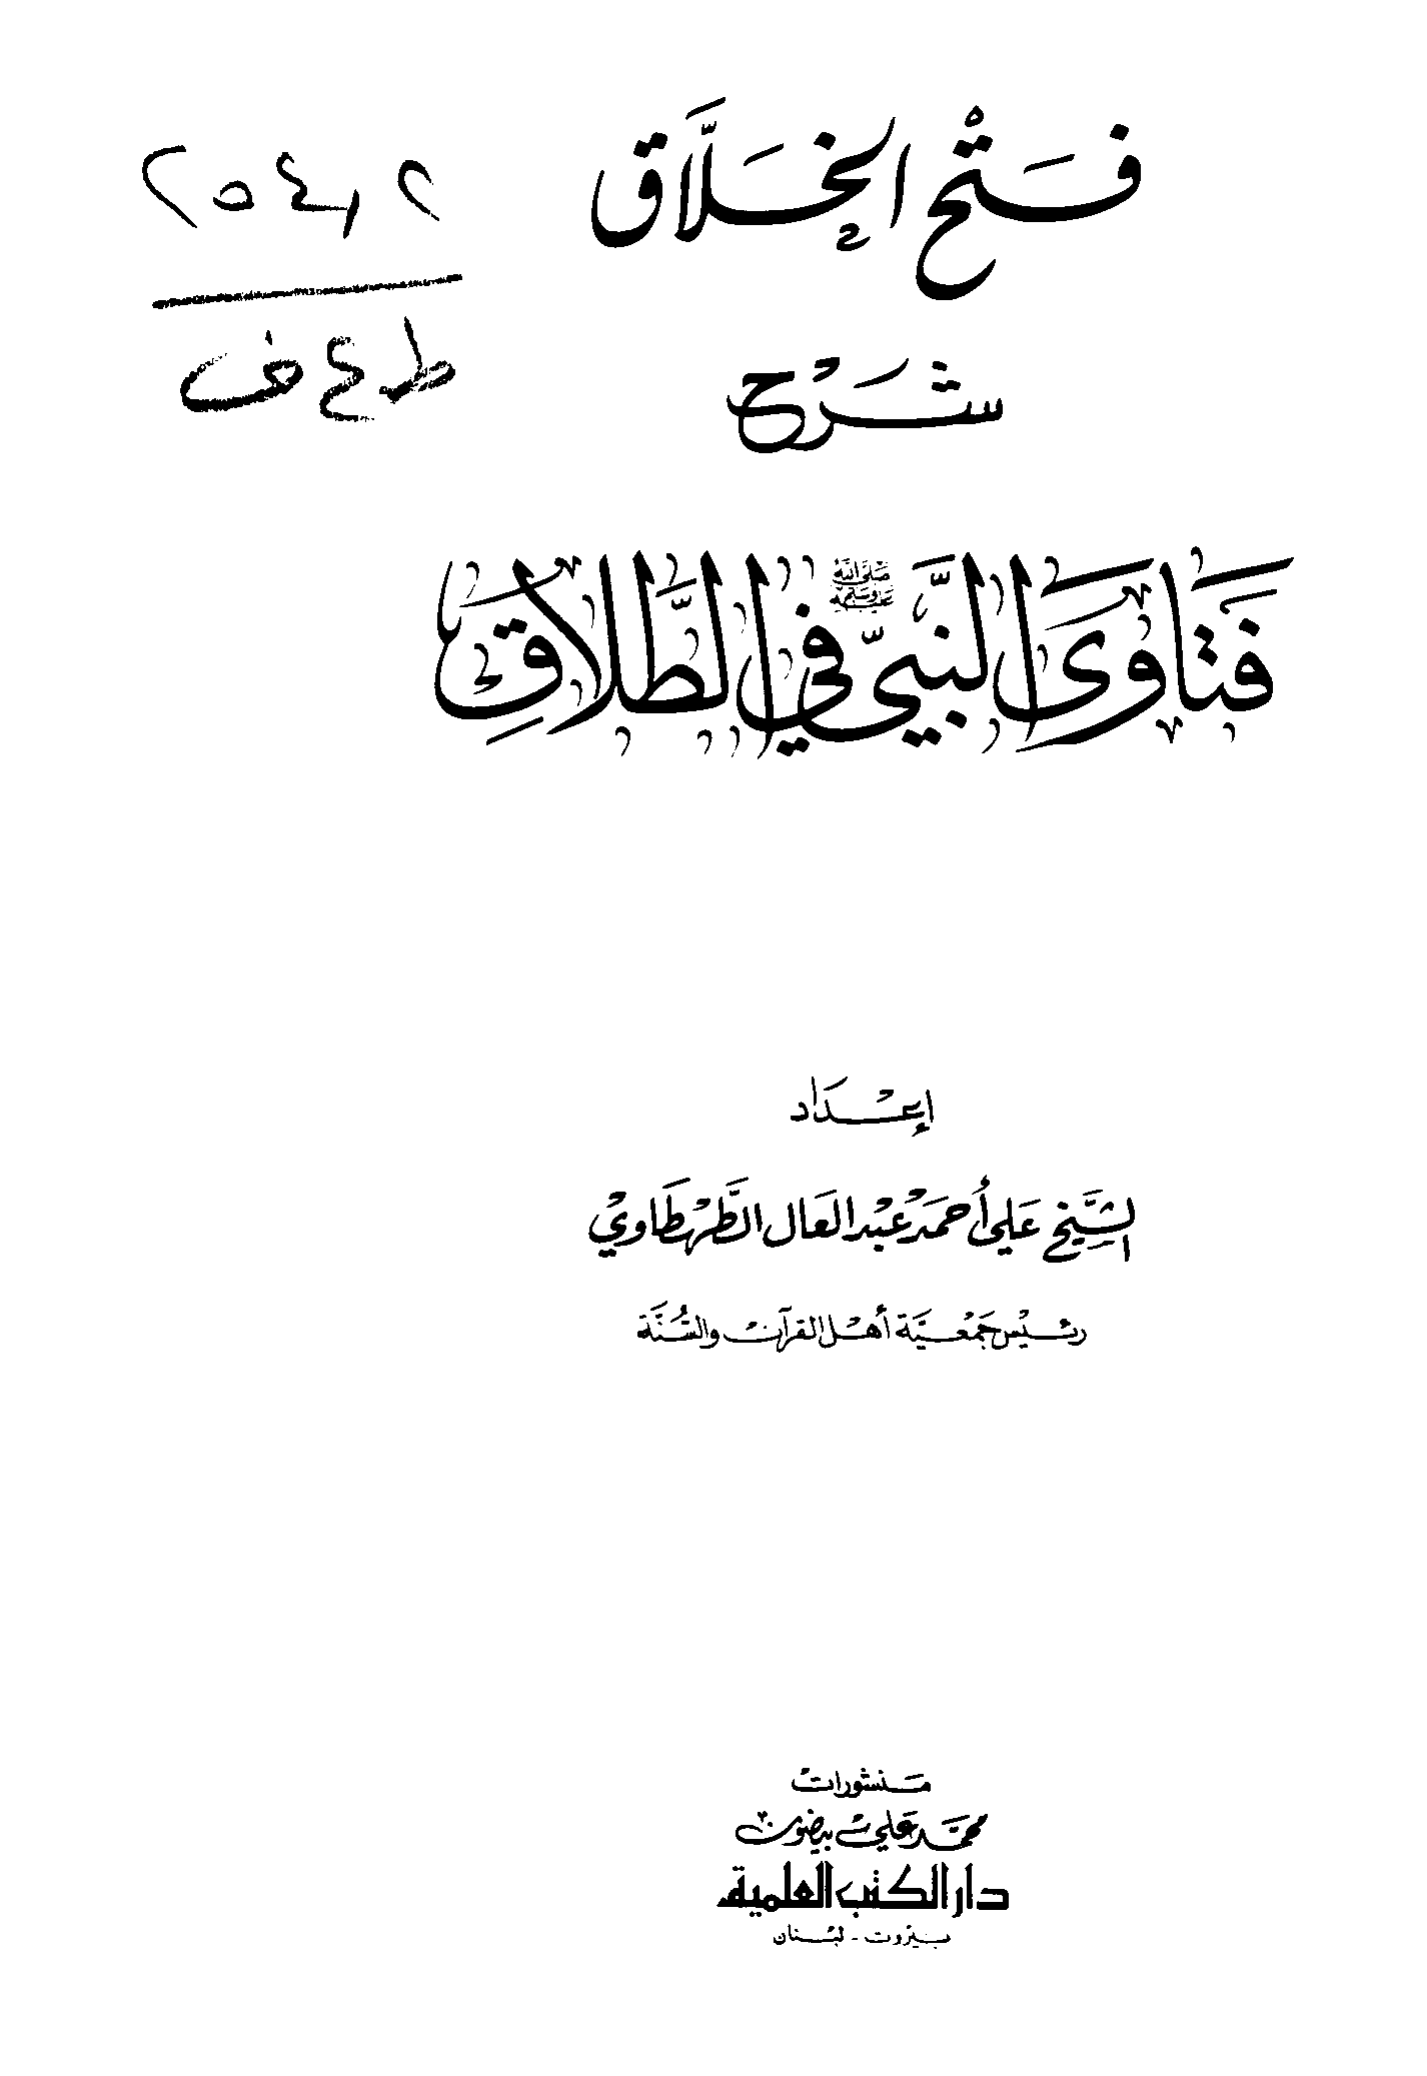 فَتْحُ الخَلَّاق
٢٥٤,٢
شَرْح
ط ع ف
فَتَاوَى النَّبِيِّ صلى الله عليه وسلم في الطَّلَاقِ
إعْدَاد
الشَّيْخ عَلي أَحْمَد عَبْد العَال الطَّهْطَاوِيْ
رئيس جَمْعيَّة أهْل القرآن والسُّنَّة
مَنشورات
محمَّد عَلي بيضون
دار الكتب العلمية
بَيْرُوت - لبْنان